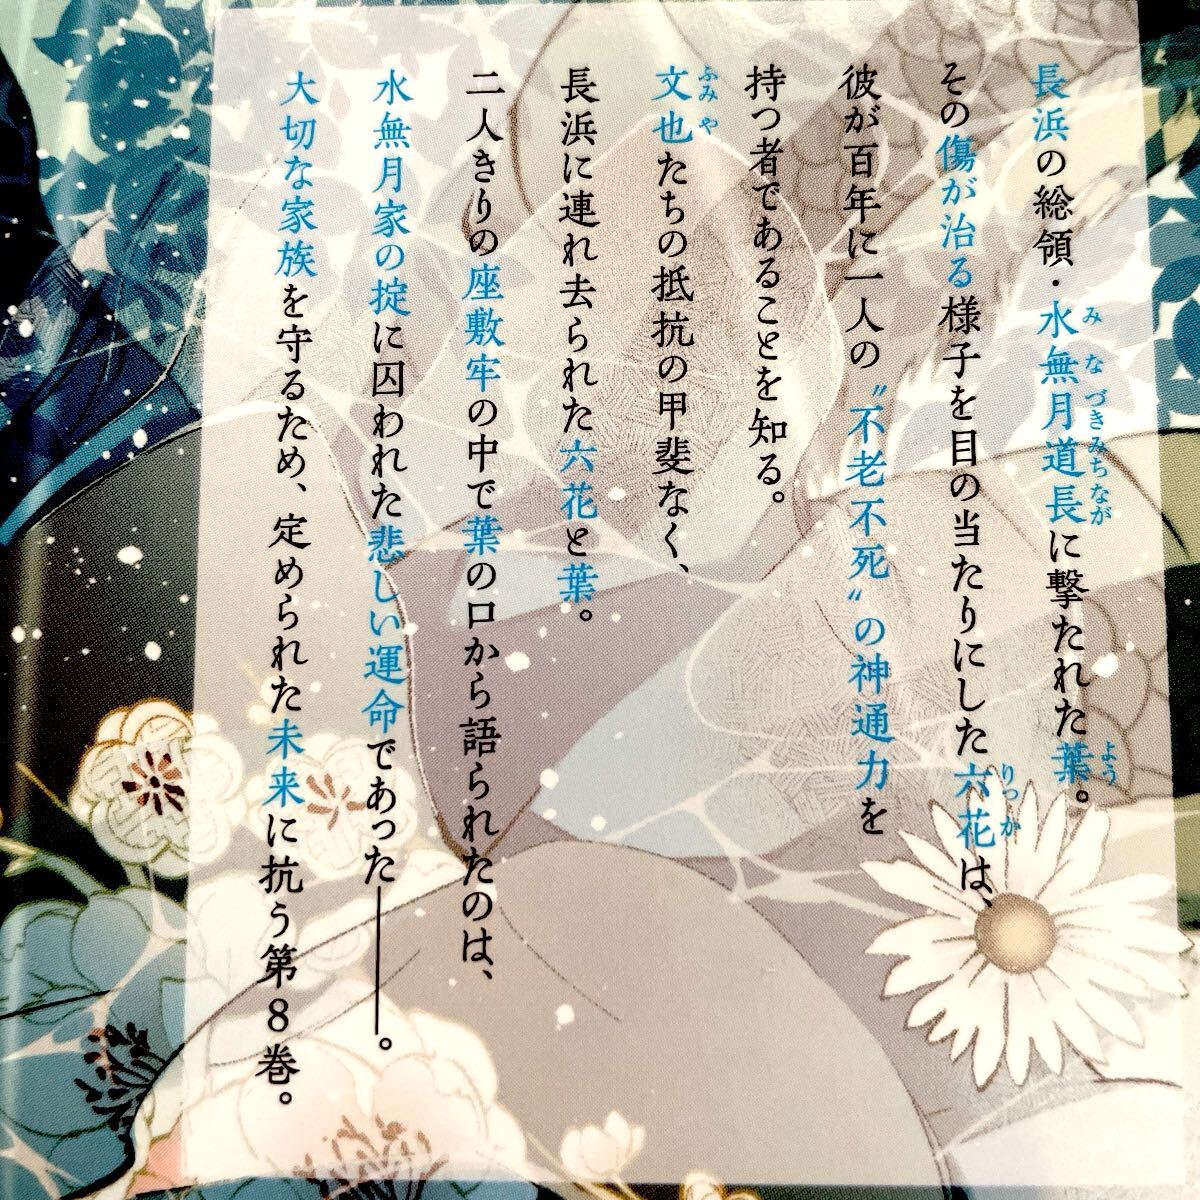 長浜の総領・水無月道長に撃たれた葉。
その傷が治る様子を目の当たりにした六花は、
彼が百年に一人の〝不老不死〟の神通力を
持つ者であることを知る。
文也たちの抵抗の甲斐なく、
長浜に連れ去られた六花と葉。
二人きりの座敷牢の中で葉の口から語られたのは、
水無月家の掟に囚われた悲しい運命であった――。
大切な家族を守るため、定められた未来に抗う第8巻。